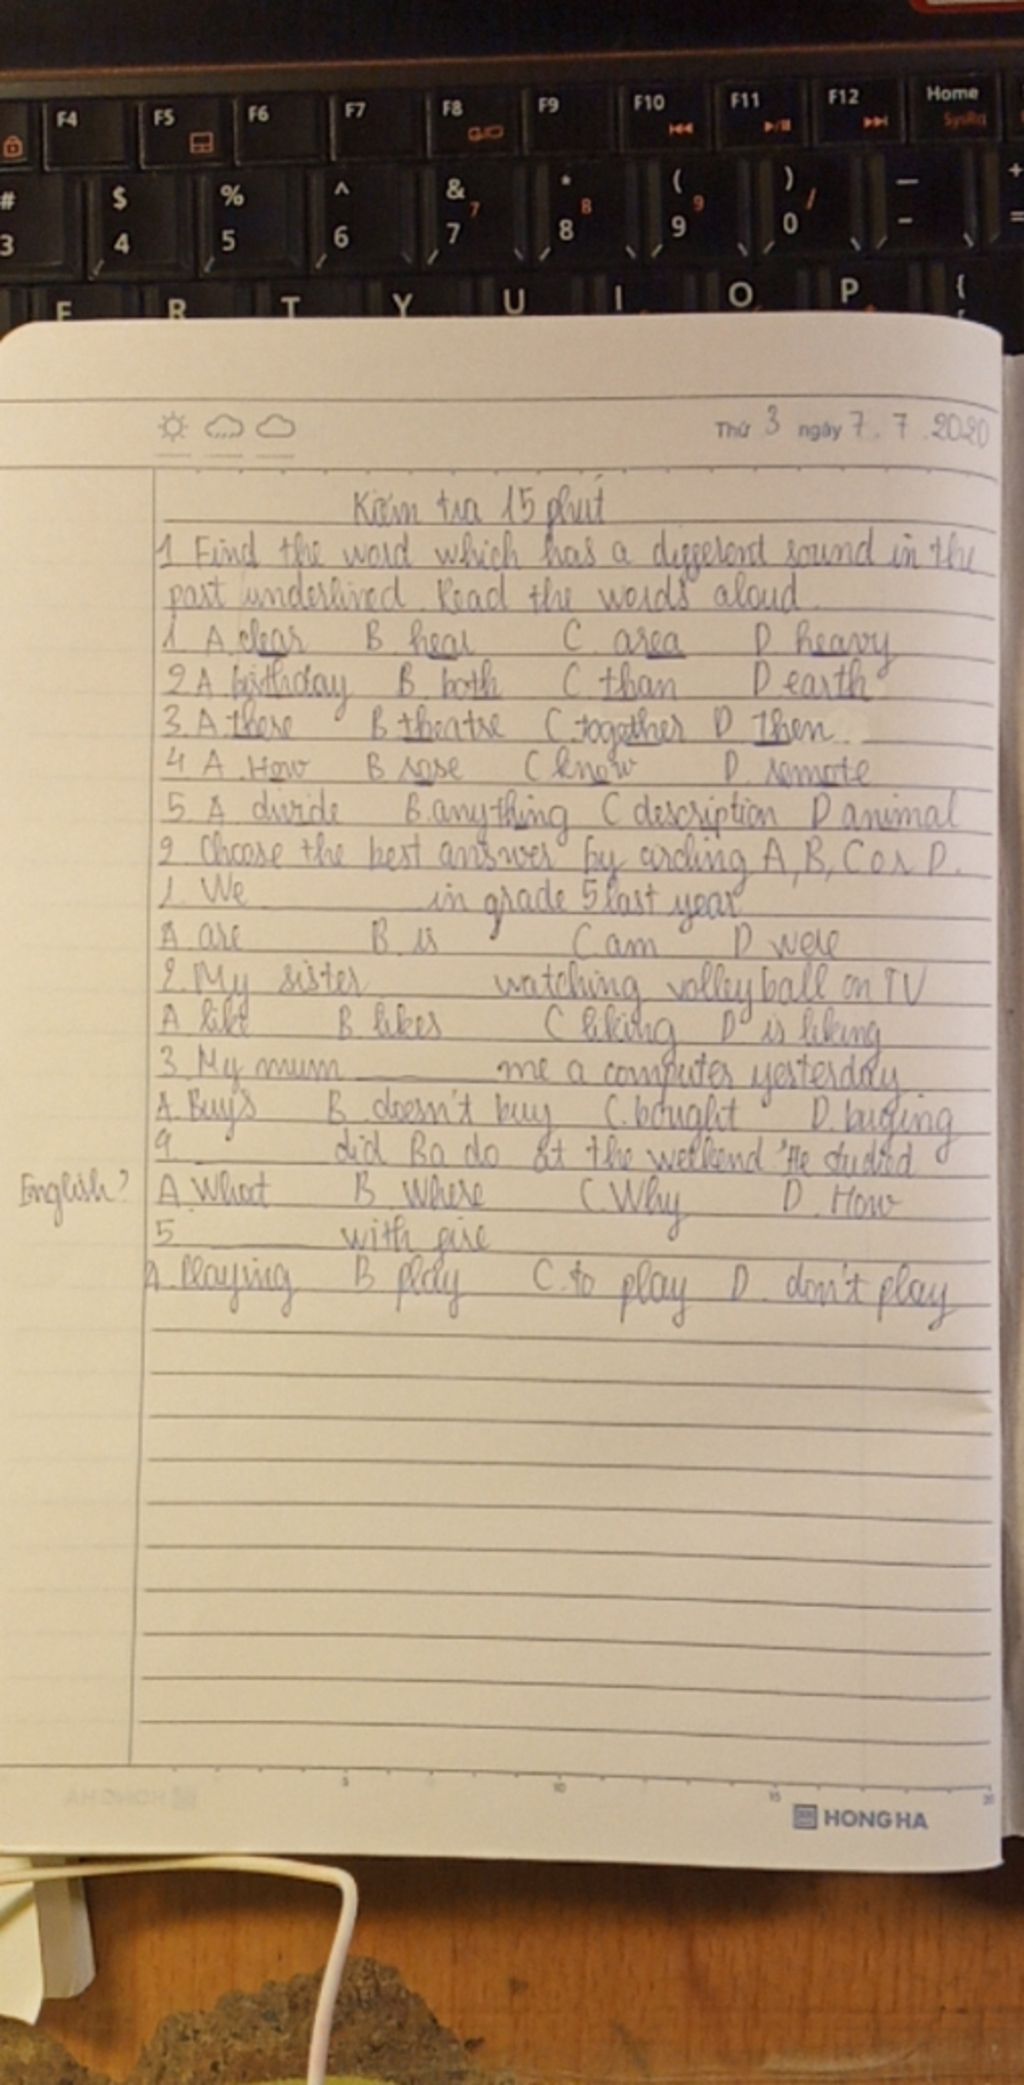 F4 F5 F6 F7 F8 F9 F10 F11 F12 Home
SysRq
# $ % ^ & * ( ) — +
3 4 5 6 7 7 8 8 9 9 0 / - =
E R T Y U I O P {
Thứ 3 ngày 7.7.2020
Kiểm tra 15 phút
1 Find the word which has a different sound in the
part underlined. Read the words aloud.
1. A. clear B. hear C. area D. heavy
2 A birthday B. both C than D earth
3. A. there B theatre C. together D then
4 A. How B rose C know D. remote
5 A divide B. anything C description D animal
2. Choose the best answer by circling A, B, C or D.
1. We ______ in grade 5 last year
A are B. is C. am D were
2. My sister ______ watching volleyball on TV
A like B likes C liking D is liking
3. My mum ______ me a computer yesterday
A. Buys B. doesn't buy C. bought D. buying
4. ______ did Ba do at the weekend "He studied
English? A. What B. Where C. Why D. How
5 ______ with fire
A. Playing B play C. to play D. don't play
5 10 15 20
HONG HA